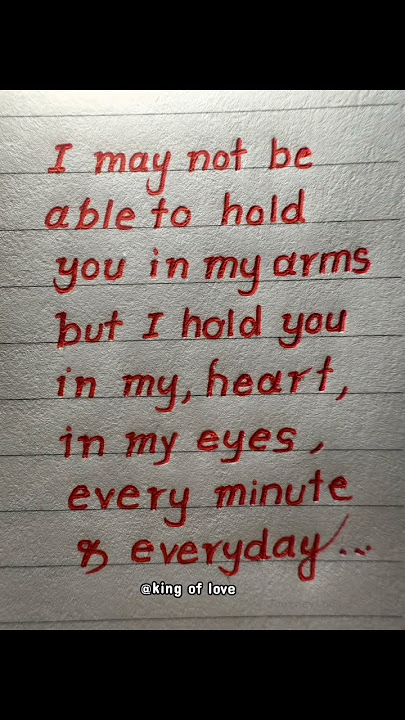 I may not be
able to hold
you in my arms
but I hold you
in my, heart,
in my eyes,
every minute
& everyday...
@king of love